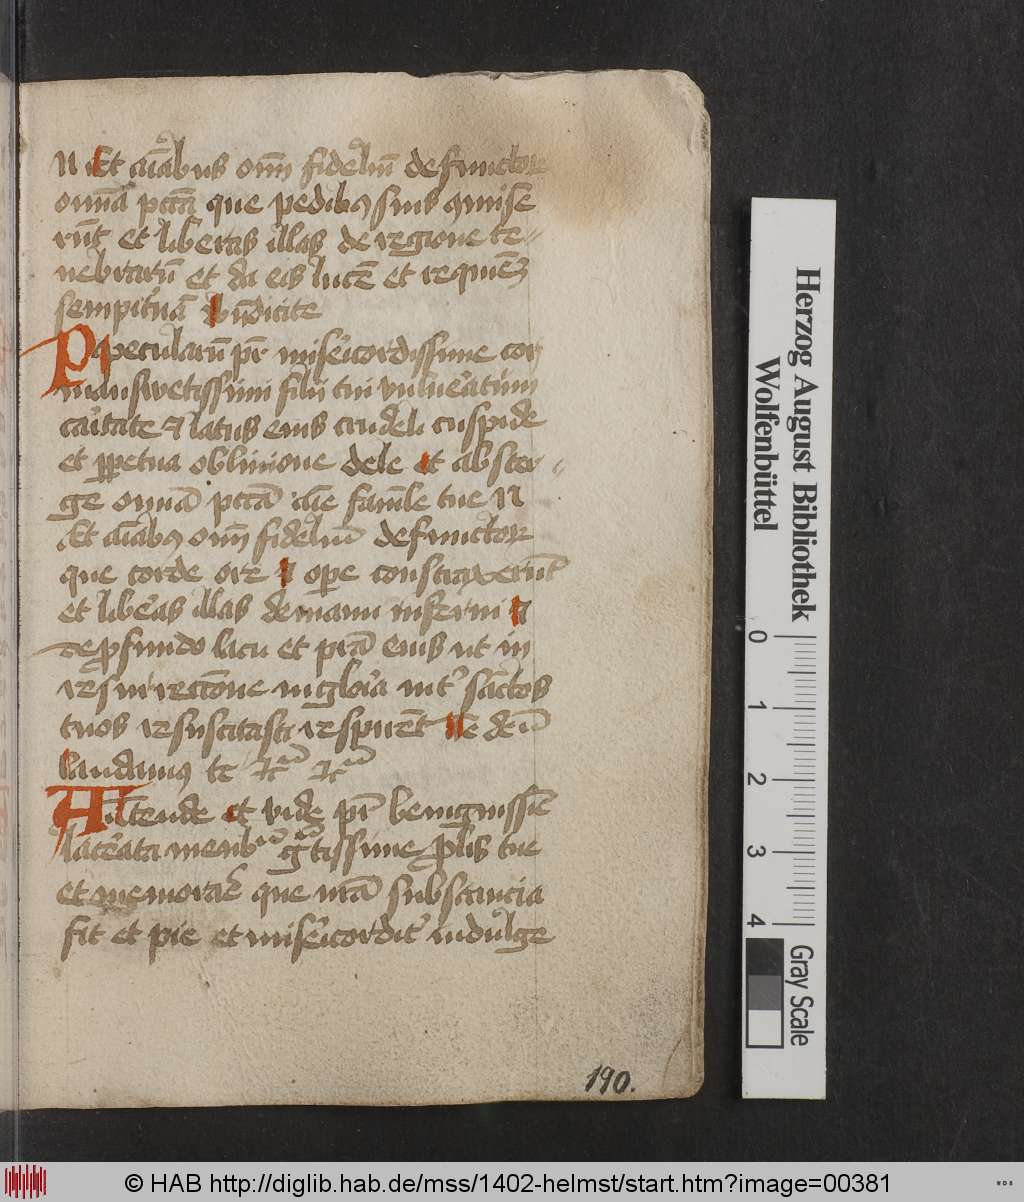 N Et aīabus om̄ fidelm̄ defunctoꝝ
om̄ia pctā que pedibꝰ suis ꝯmise
rūt et liberas illas de regione te⸗
nebrarū et da eis lucē et requiē
sempit'nā Bn̄dicite
pr misericordissime cor
mansuetissimi filii tui vulneratum
caritate ⁊ latus eius crudeli cuspide
et ꝑpetua oblivione dele et abster⸗
ge om̄ia pctā aīe famule tue N
Et aīabꝰ om̄ fideliū defunctoꝝ
que corde ore ⁊ oꝑe contraxerūt
et liberas illas de manu inferni ⁊
de ꝓfundo lacu et prā eius ut in
resurrectione in gloria int' sāctos
tuos resuscitasti respirent Te deū
laudamus te
Attende et vide pr benignissīe
ꝓlis tue
et memorare que nrā substancia
fit et pie et misericordit' indulge
190.
Herzog August Bibliothek
Wolfenbüttel
0 1 2 3 4
Gray Scale
© HAB http://diglib.hab.de/mss/1402-helmst/start.htm?image=00381